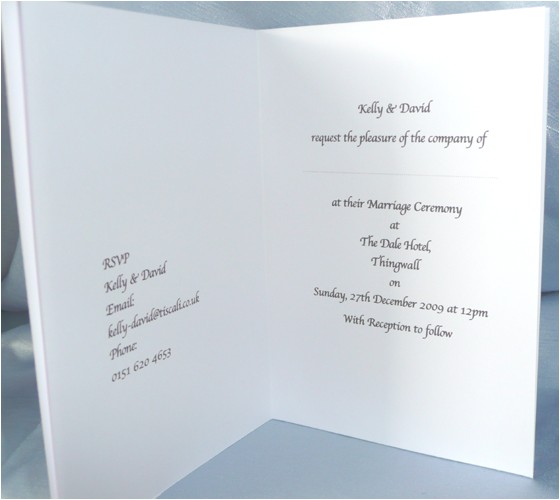 RSVP
Kelly & David
Email:
kelly-david@tiscali.co.uk
Phone:
0151 620 4653
Kelly & David
request the pleasure of the company of
at their Marriage Ceremony
at
The Dale Hotel,
Thingwall
on
Sunday, 27th December 2009 at 12pm
With Reception to follow